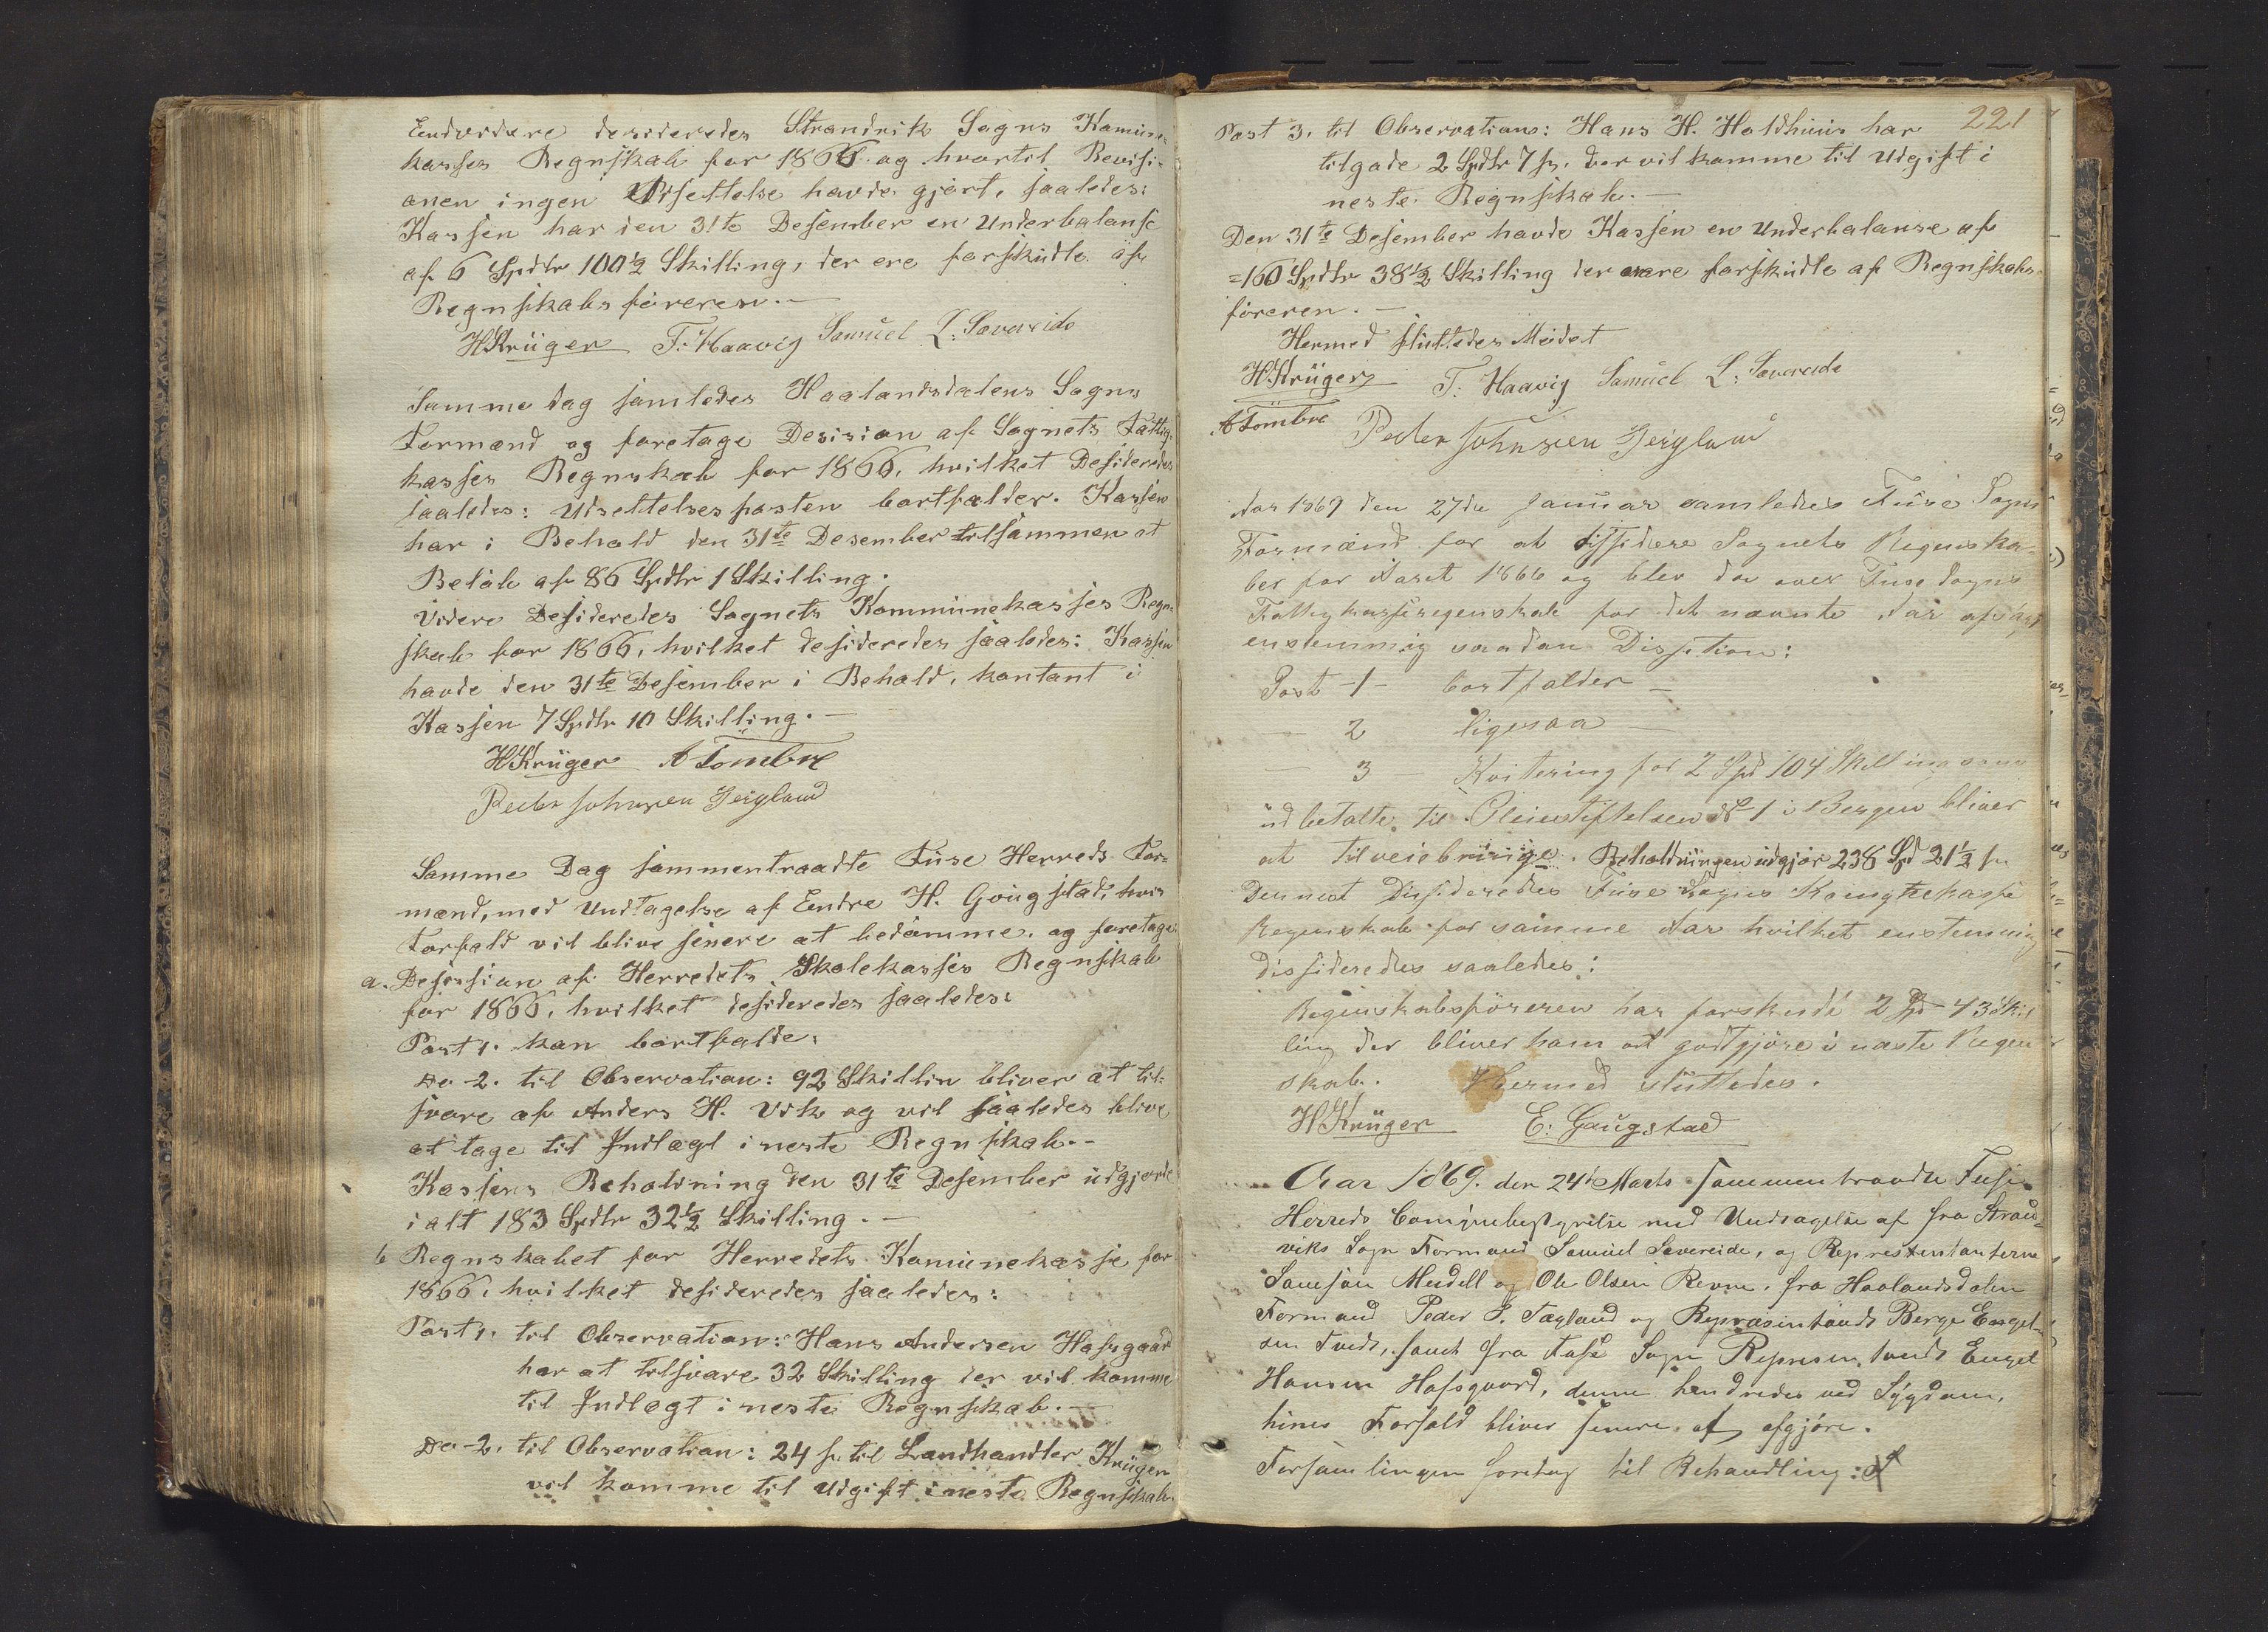 Endvidere desideredes Strandvik Sogns Komune-
kasses Regnskab for 1866 og hvortil Revisi-
onen ingen Udsettelse havde gjort, saaledes:
Kassen har den 31te Desember en Underbalanse
af 6 Spdlr 100½ Skilling, der ere forskudte af
Regnskabsføreren.—
HKrüger T. Haavig Samuel L: Sævereide
Samme Dag samledes Haalandsdalens Sogns
Formænd og foretage Desision af Sognets Fattig-
kasses Regnskab for 1866, hvilket Desideredes
saaledes: Udsettelsesposten bortfalder. Kassen
har i Behold den 31te Desember tilsammen et
Beløb af 86 Spdlr 1 Skilling.
Videre Desideredes Sognets Kommunekasses Regn-
skab for 1866, hvilket desideredes saaledes: Kassen
havde den 31te Desember i Behold, kontant i
Kassen 7 Spdlr 10 Skilling.—
HKrüger A Tombre
Peder Johnsen Teigland
Samme Dag sammentraadte Fuse Herreds For-
mænd, med Undtagelse af Endre H. Gougstad, hvis
Forfald vil blive senere at bedømme, og foretage
a. Desision af Herredets Skolekasses Regnskab
for 1866, hvilket desideredes saaledes:
Post 1. kan bortfalde.
Do 2. til Observation: 92 Skillin bliver at til-
svare af Anders H. Vik og vil saaledes blive
at tage til Indtægt i neste Regnskab.—
Kassens Beholdning den 31te Desember udgjorde
i alt 183 Spdlr 32½ Skilling.—
b Regnskabet for Herredets Komunekasse for
1866, hvilket desideredes saaledes:
Post 1. til Observation: Hans Andersen Hafsgaard
har at tilsvare 32 Skilling der vil komme
til Indtægt i neste Regnskab.—
Do 2. til Observation: 24 s. til Landhandler Krüger
vil komme til Udgift i neste Regnskab.
221
Post 3. til Observation: Hans H. Holdhuus har
tilgode 2 Spdlr 7 s. der vil komme til Udgift i
neste Regnskab.—
Den 31te Desember havde Kassen en Underbalanse af
=160 Spdlr 38½ Skilling der ere forskudte af Regnskabs-
føreren.—
Hermed sluttedes Mødet
H.Krüger T. Haavig Samuel L: Sævereide
A Tombre Peder Johnsen Teigland
Aar 1869 den 27de Januar samledes Fuse Sogns
Formænd for at dissidere Sognets Regnska-
ber for Aaret 1866 og blev da over Fuse Sogns
Fattigkasseregnskab for det nævnte Aar
enstemmig saadan Dissition:
Post -1- bortfalder —
— 2 ligesaa —
— 3 — Kvitering for 2 Spd 104 Skilling som
udbetalte til Pleiestiftelsen № 1 i Bergen bliver
at tilveiebringe. Beholdningen udgjør 238 Spd 21½ s.
Dernest Dissideredes Fuse Sogns
Regnskab for samme Aar hvilket enstemmig
dissideredes saaledes:
Regnskabsføreren har forskudt 2 Spd 43 Skil
ling der bliver ham at godtgjøre i næste Regn
skab. Hermed sluttedes.
HKrüger E: Gaugstad
Aar 1869. den 24de Marts sammentraadte Fuse
Herreds Comunebestyrelse med Undtagelse af fra Strand-
viks Sogn Formand Samuel Sævereide, og Representanterne
Samson Medell og Ole Olsen Revne, fra Haalandsdalen
Formand Peder J. Teigland og Repræsintants Berge Engel-
sen Tveds, samt fra Fuse Sogn Representands Engel
Hansen Hafsgaard, denne hindredes ved Sygdom,
hines Forfald bliver senere at afgjøre.
Forsamlingen foretog til Behandling: